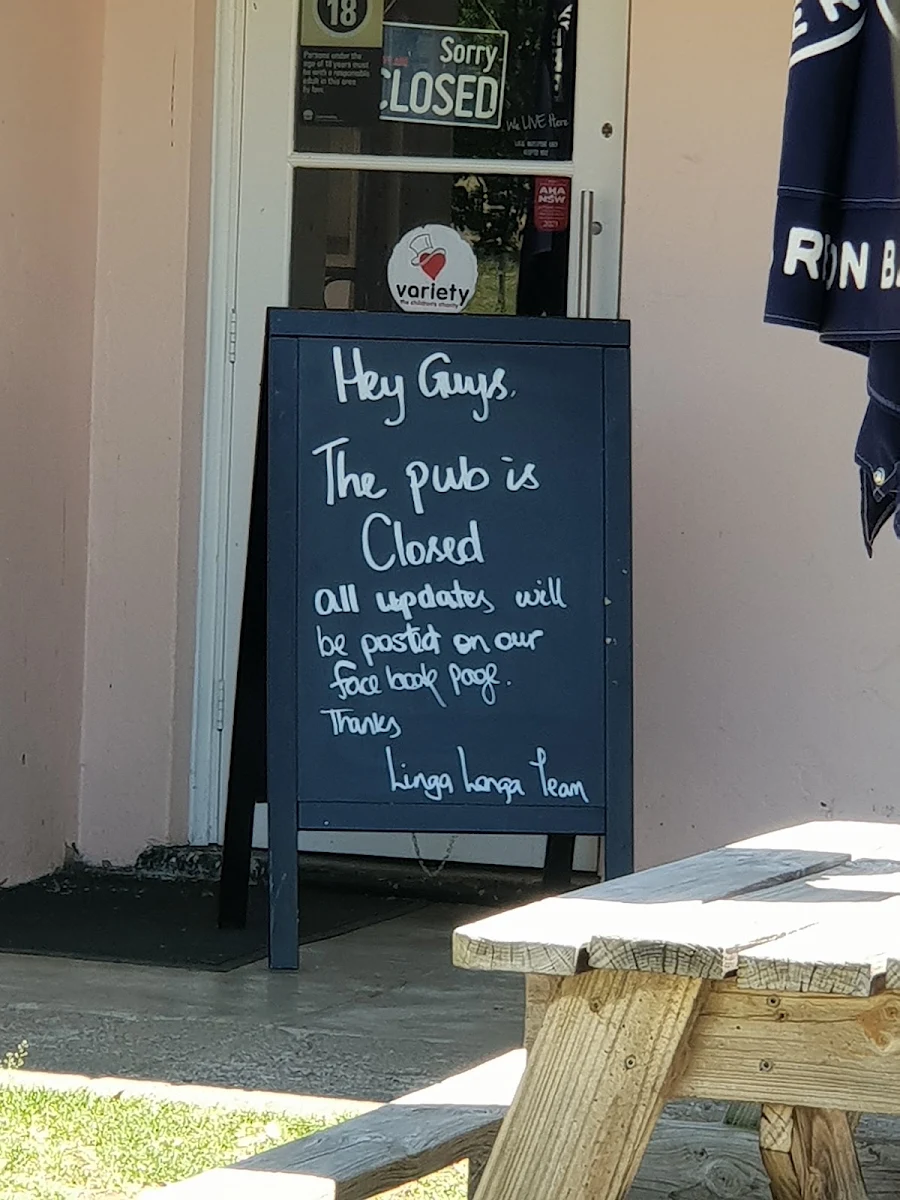 18
Persons under the
age of 18 years must
be with a responsible
adult in this area
by law.
Sorry
CLOSED
We LIVE Here
AHA
NSW
2021
variety
the children's charity
Hey Guys,
The pub is
Closed
all updates will
be posted on our
face book page.
Thanks
Linga Longa Team